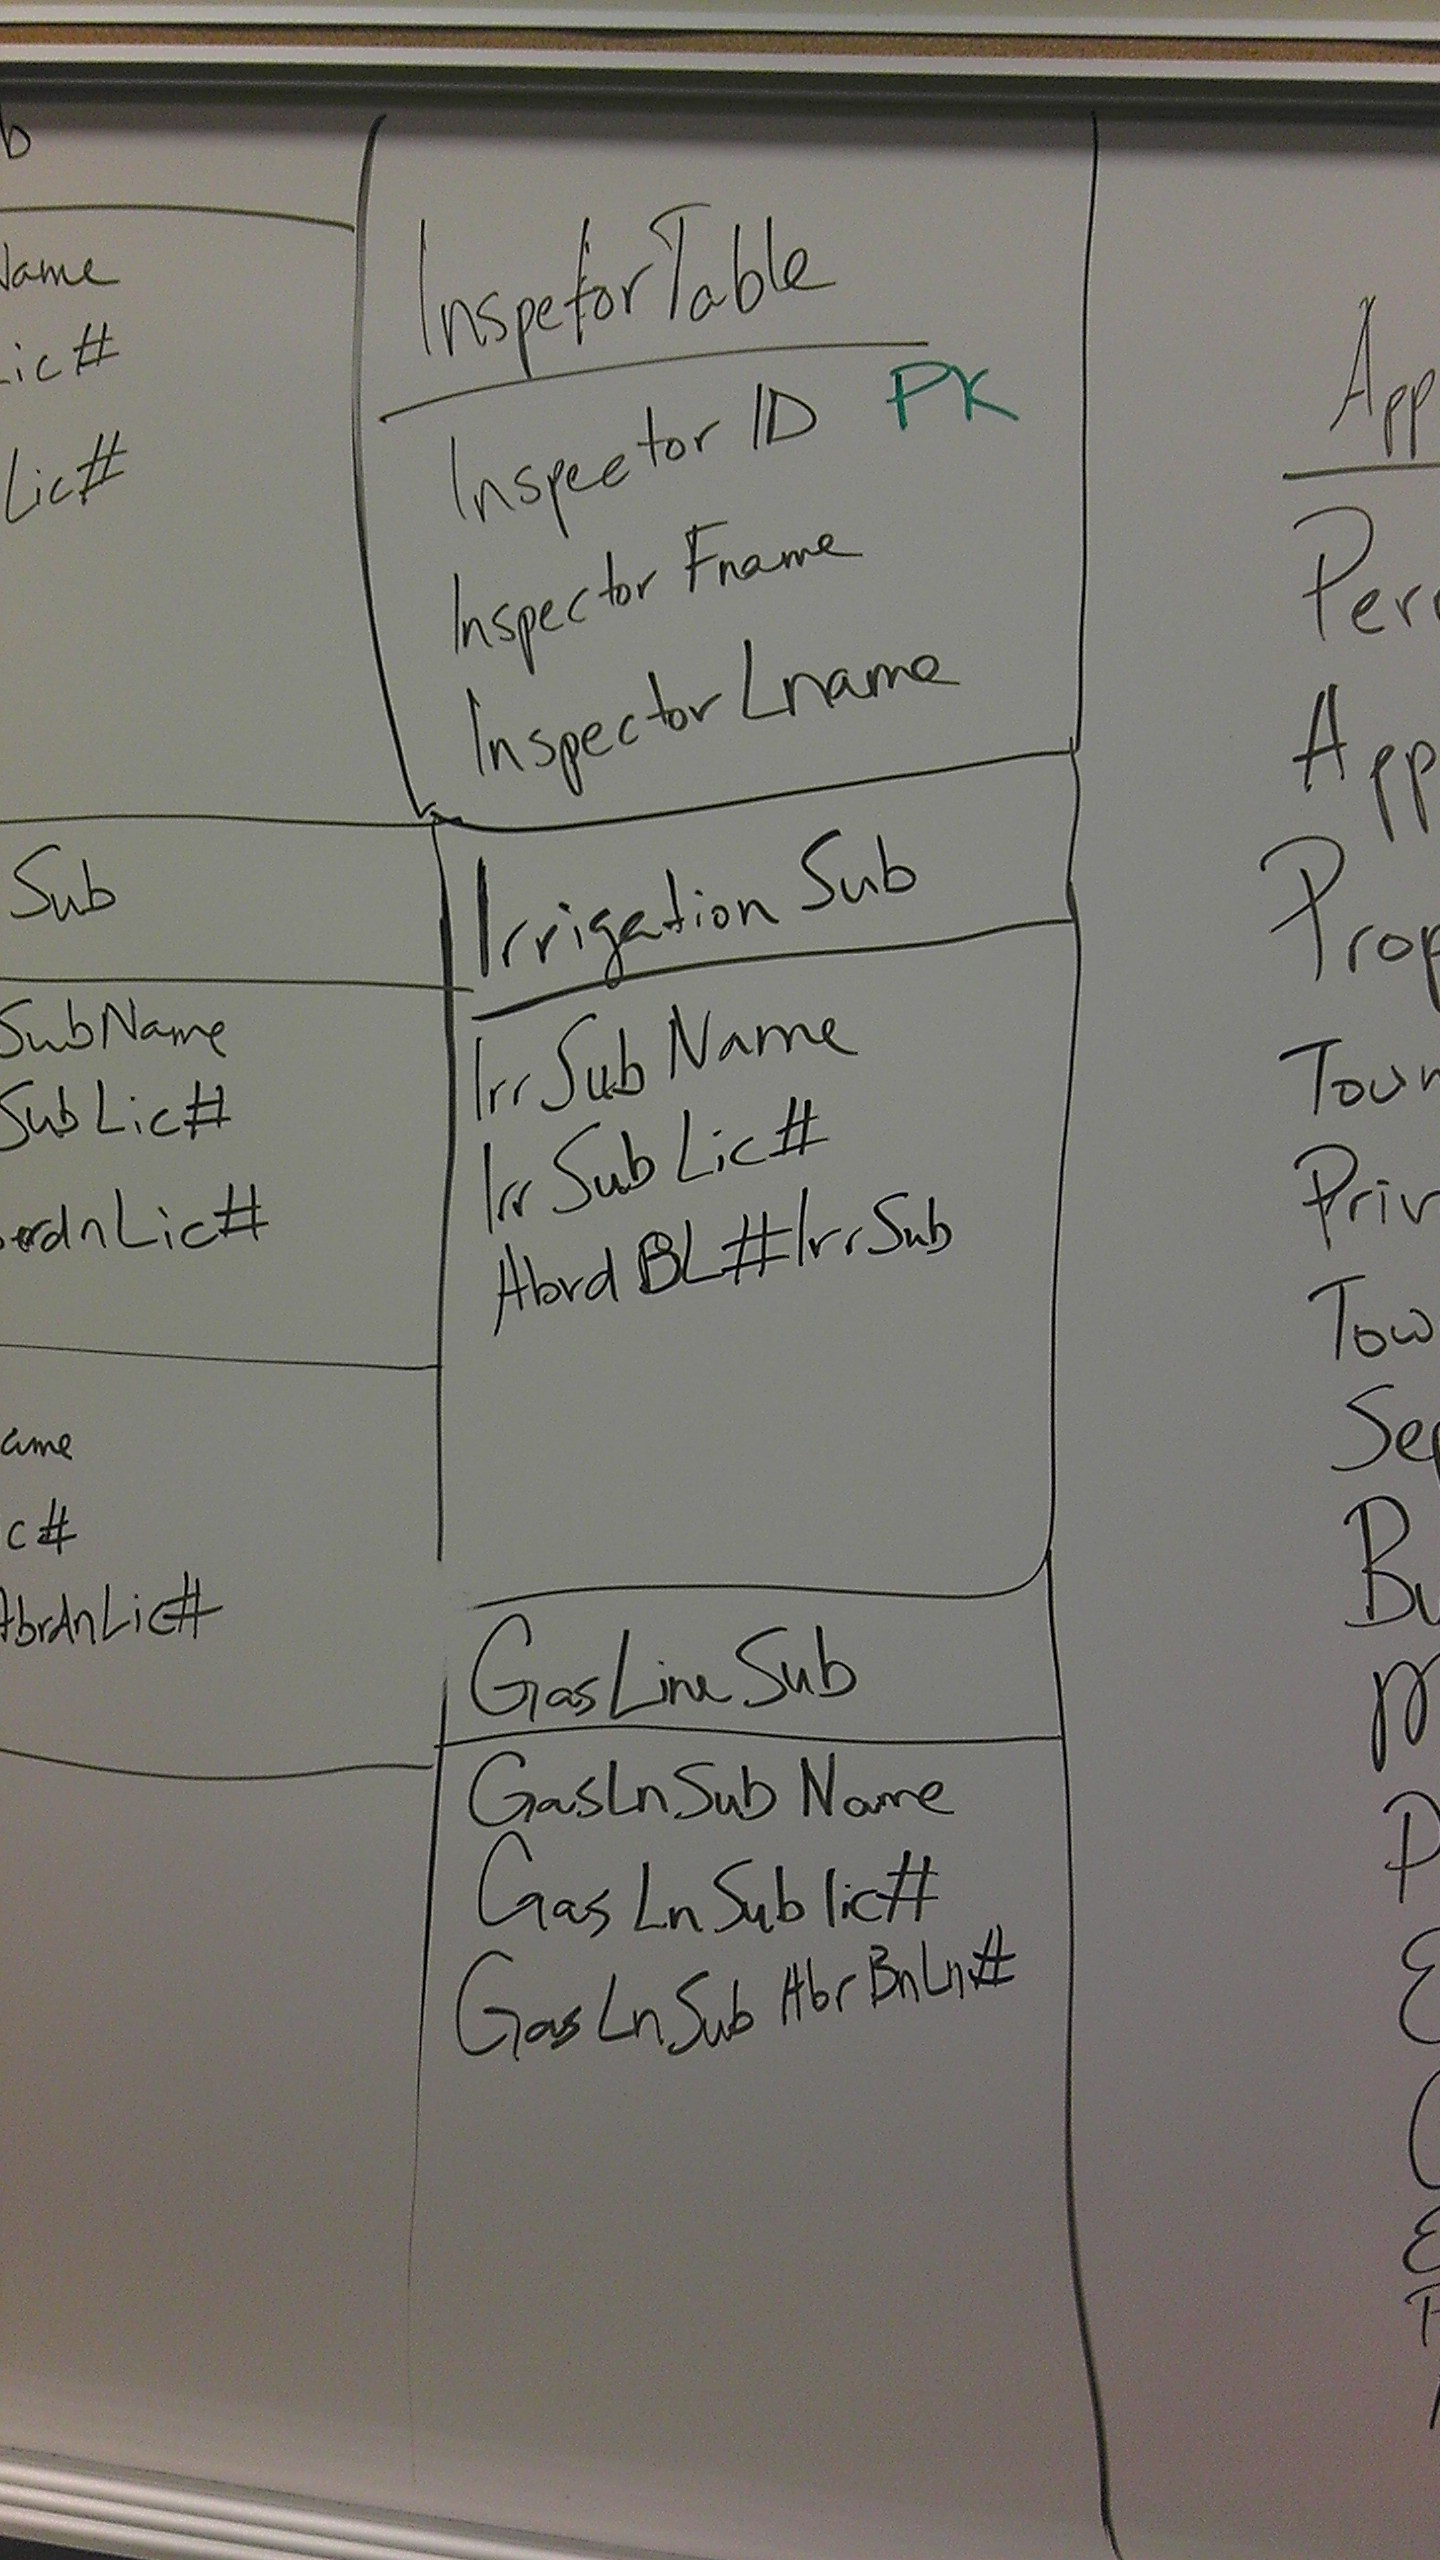 b
Name
Lic#
Lic#
Sub
SubName
SubLic#
rdnLic#
ame
c#
AbrdnLic#
InspetorTable
Inspector ID PK
Inspector Fname
Inspector Lname
Irrigation Sub
IrrSub Name
IrrSub Lic#
Abrd BL#IrrSub
GasLineSub
GasLnSub Name
Gas LnSub lic#
Gas LnSub AbrBnLn#
App
Per
App
Prop
Town
Priv
Tow
Sep
Bu
M
P
E
C
E